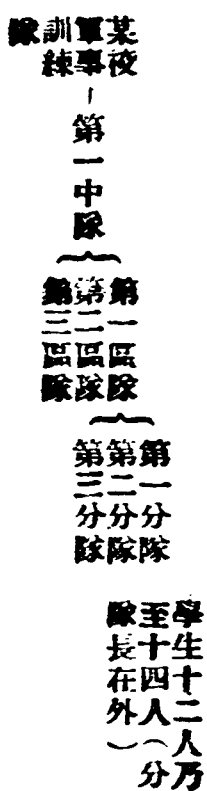 某校
軍事
訓練
隊
第一中隊
第一區隊
第二區隊
第三區隊
第一分隊
第二分隊
第三分隊
學生十二人乃
至十四人（分
隊長在外）